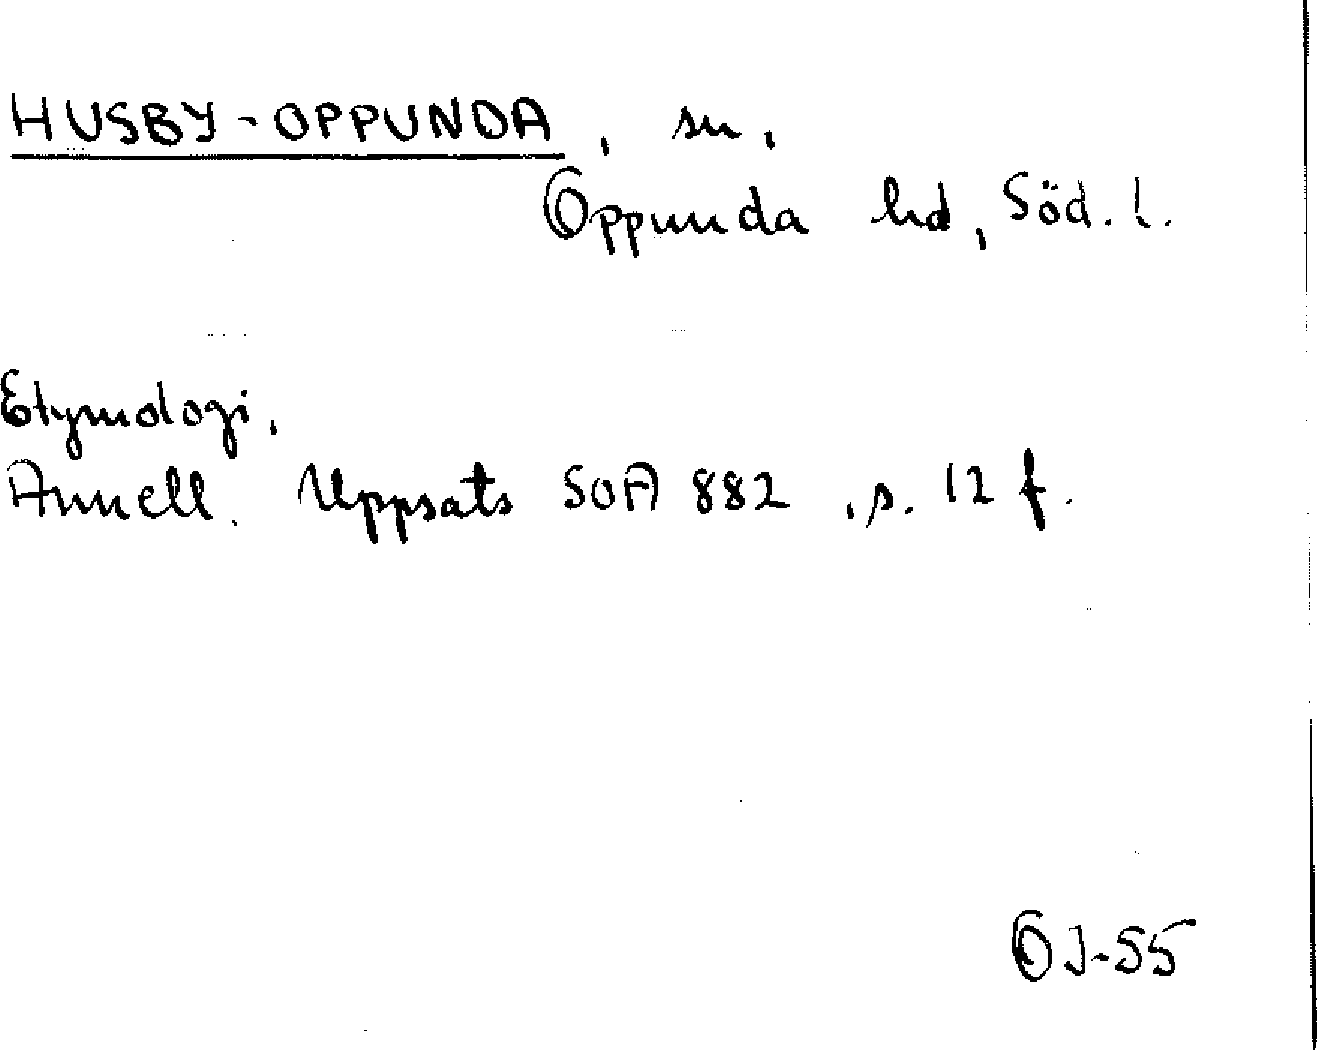 HUSBY-OPPUNDA, sn,
Oppunda hd, Söd. l.
Etymologi,
Annell. Uppsats SOA 882, s. 12 f.
OJ-55